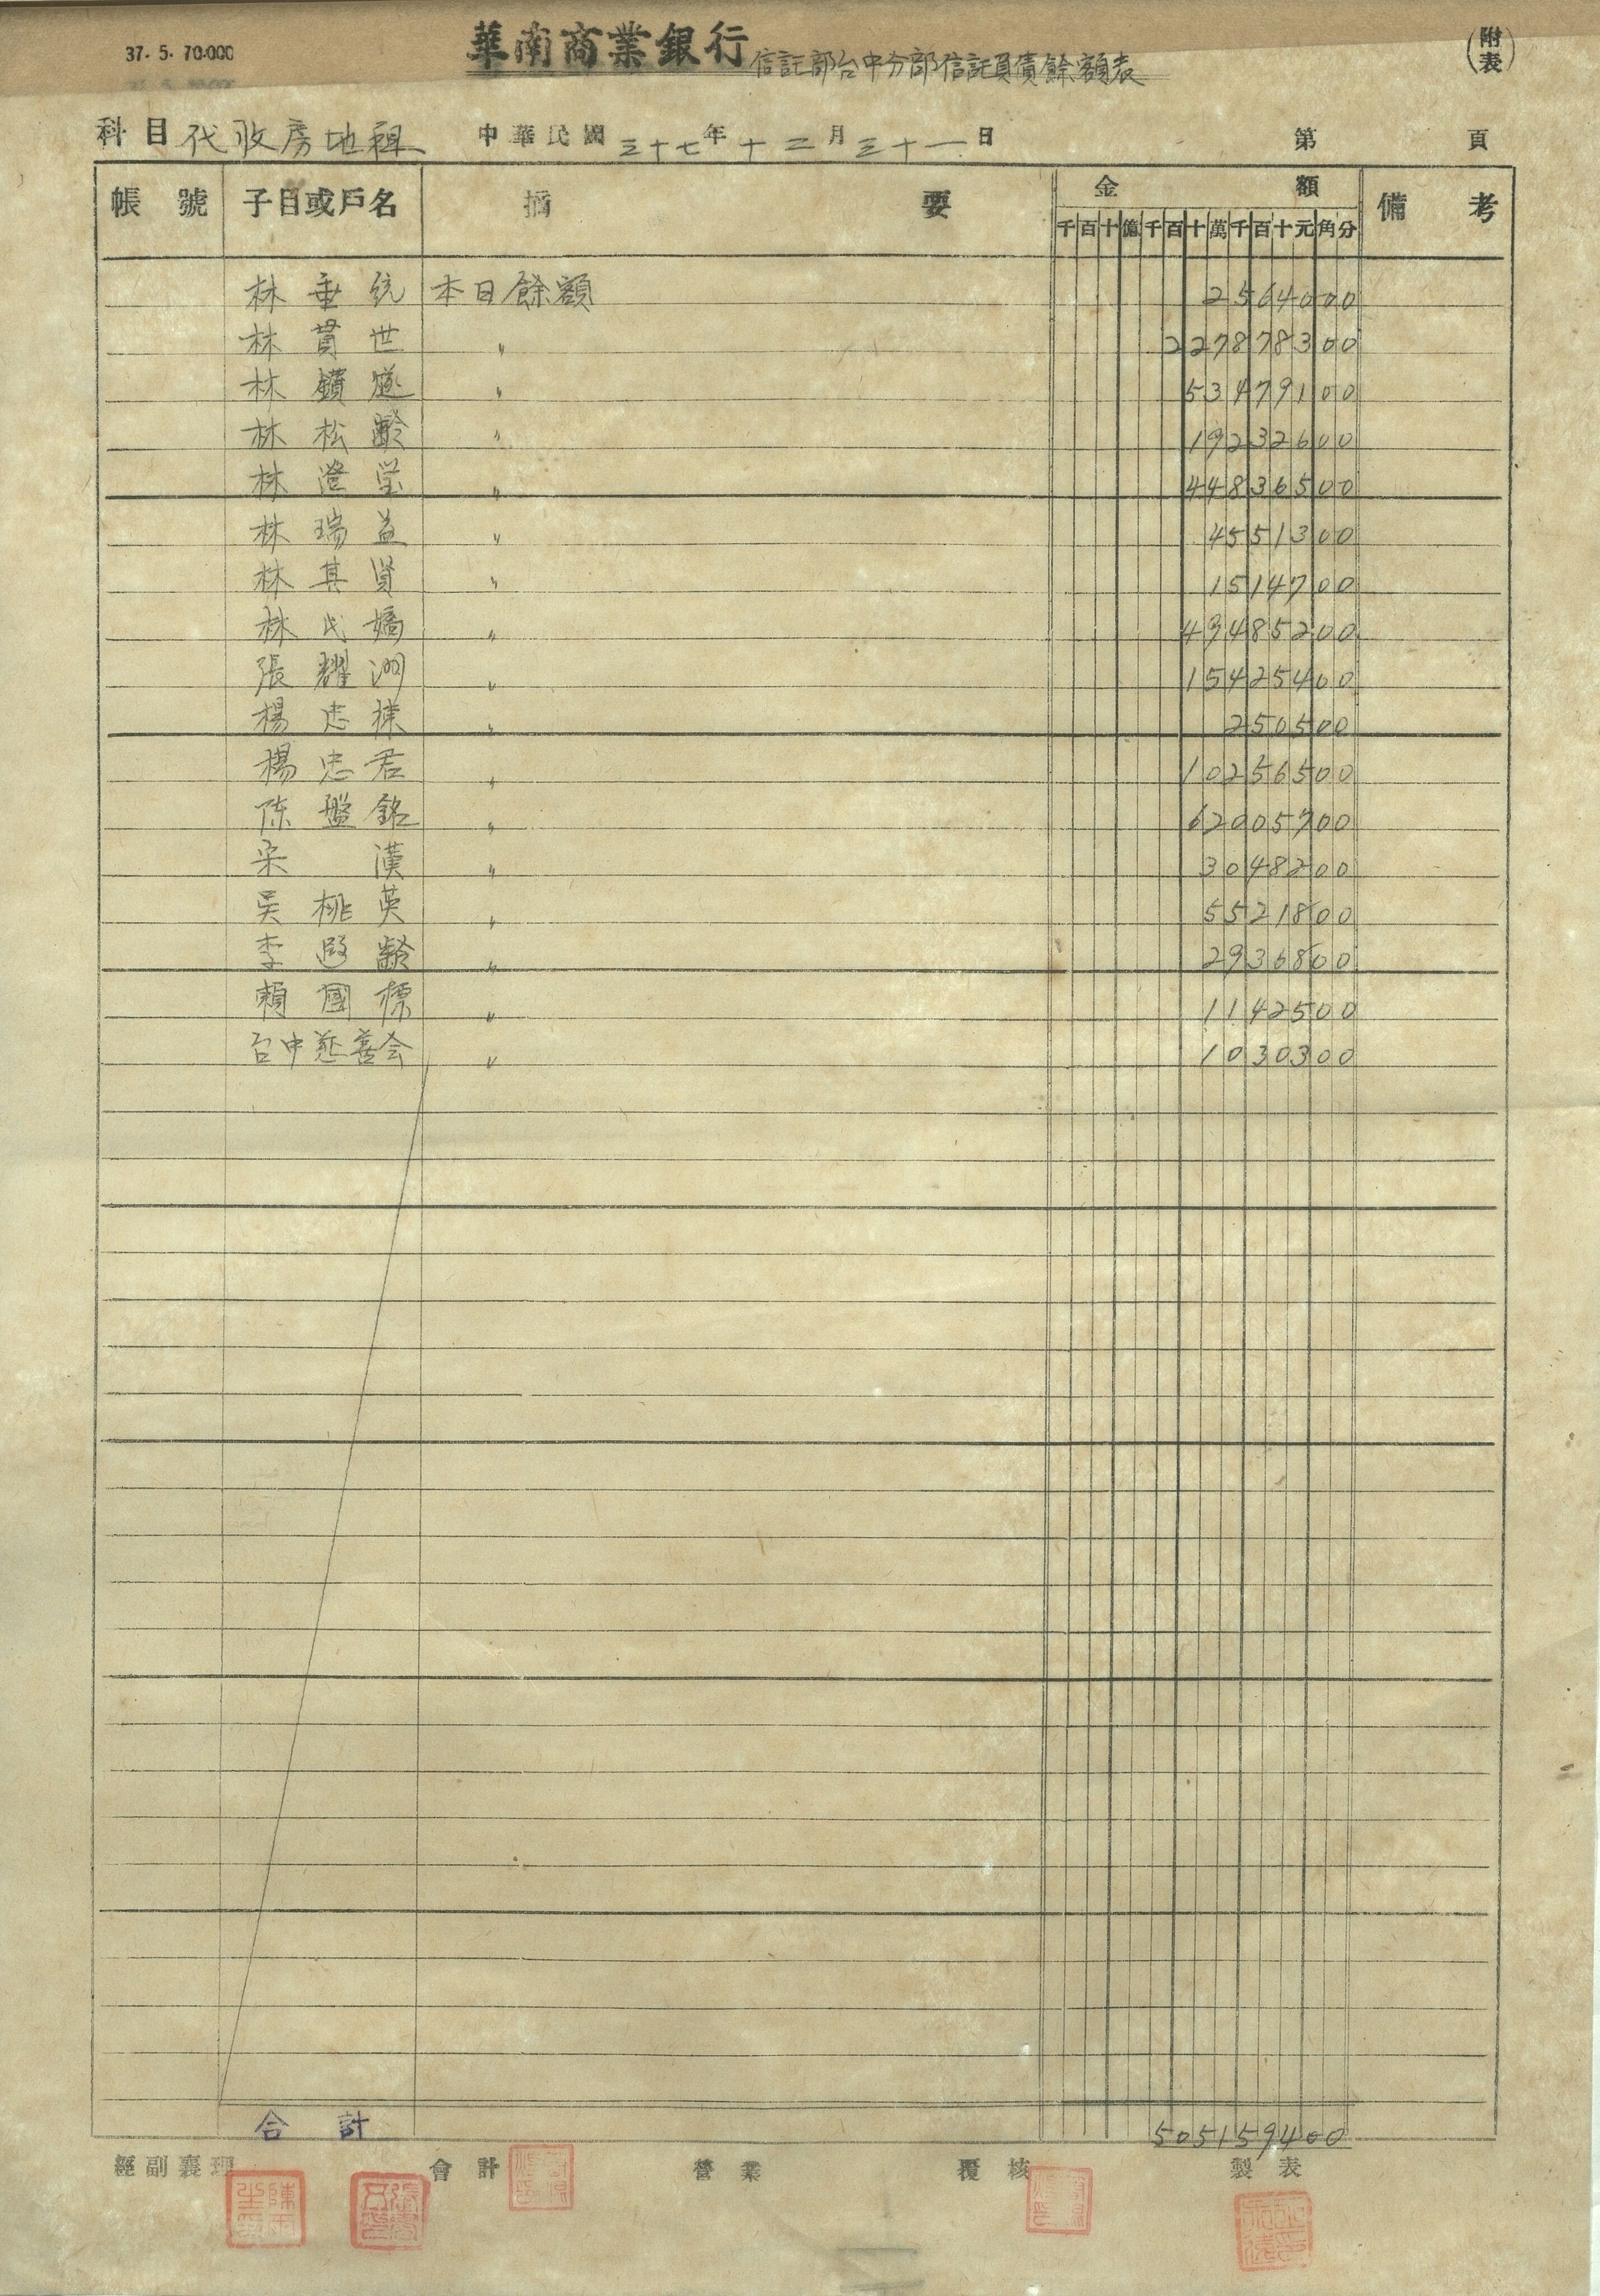 37. 5. 70.000
華南商業銀行信託部台中分部信託負債餘額表
(附表)
科目 代收房地租 中華民國三十七年十二月三十一日 第 頁
帳號 子目或戶名 摘要 金額 備考
千百十億千百十萬千百十元角分
林垂統 本日餘額 2564000
林貫世 〃 227878300
林鑽燧 〃 53479100
林松齡 〃 19232600
林澄瑩 〃 44836500
林瑞益 〃 4551300
林其賢 〃 1514700
林氏嬌 〃 49485200
張耀洲 〃 15425400
楊忠樣 〃 250500
楊忠君 〃 10256500
陈盤銘 〃 62005700
宋漢 〃 3048200
吴桃英 〃 5521800
李遐齡 〃 2936800
賴國標 〃 1142500
台中慈善会 〃 1030300
合計 505159400
經副襄理 會計 營業 覆核 製表